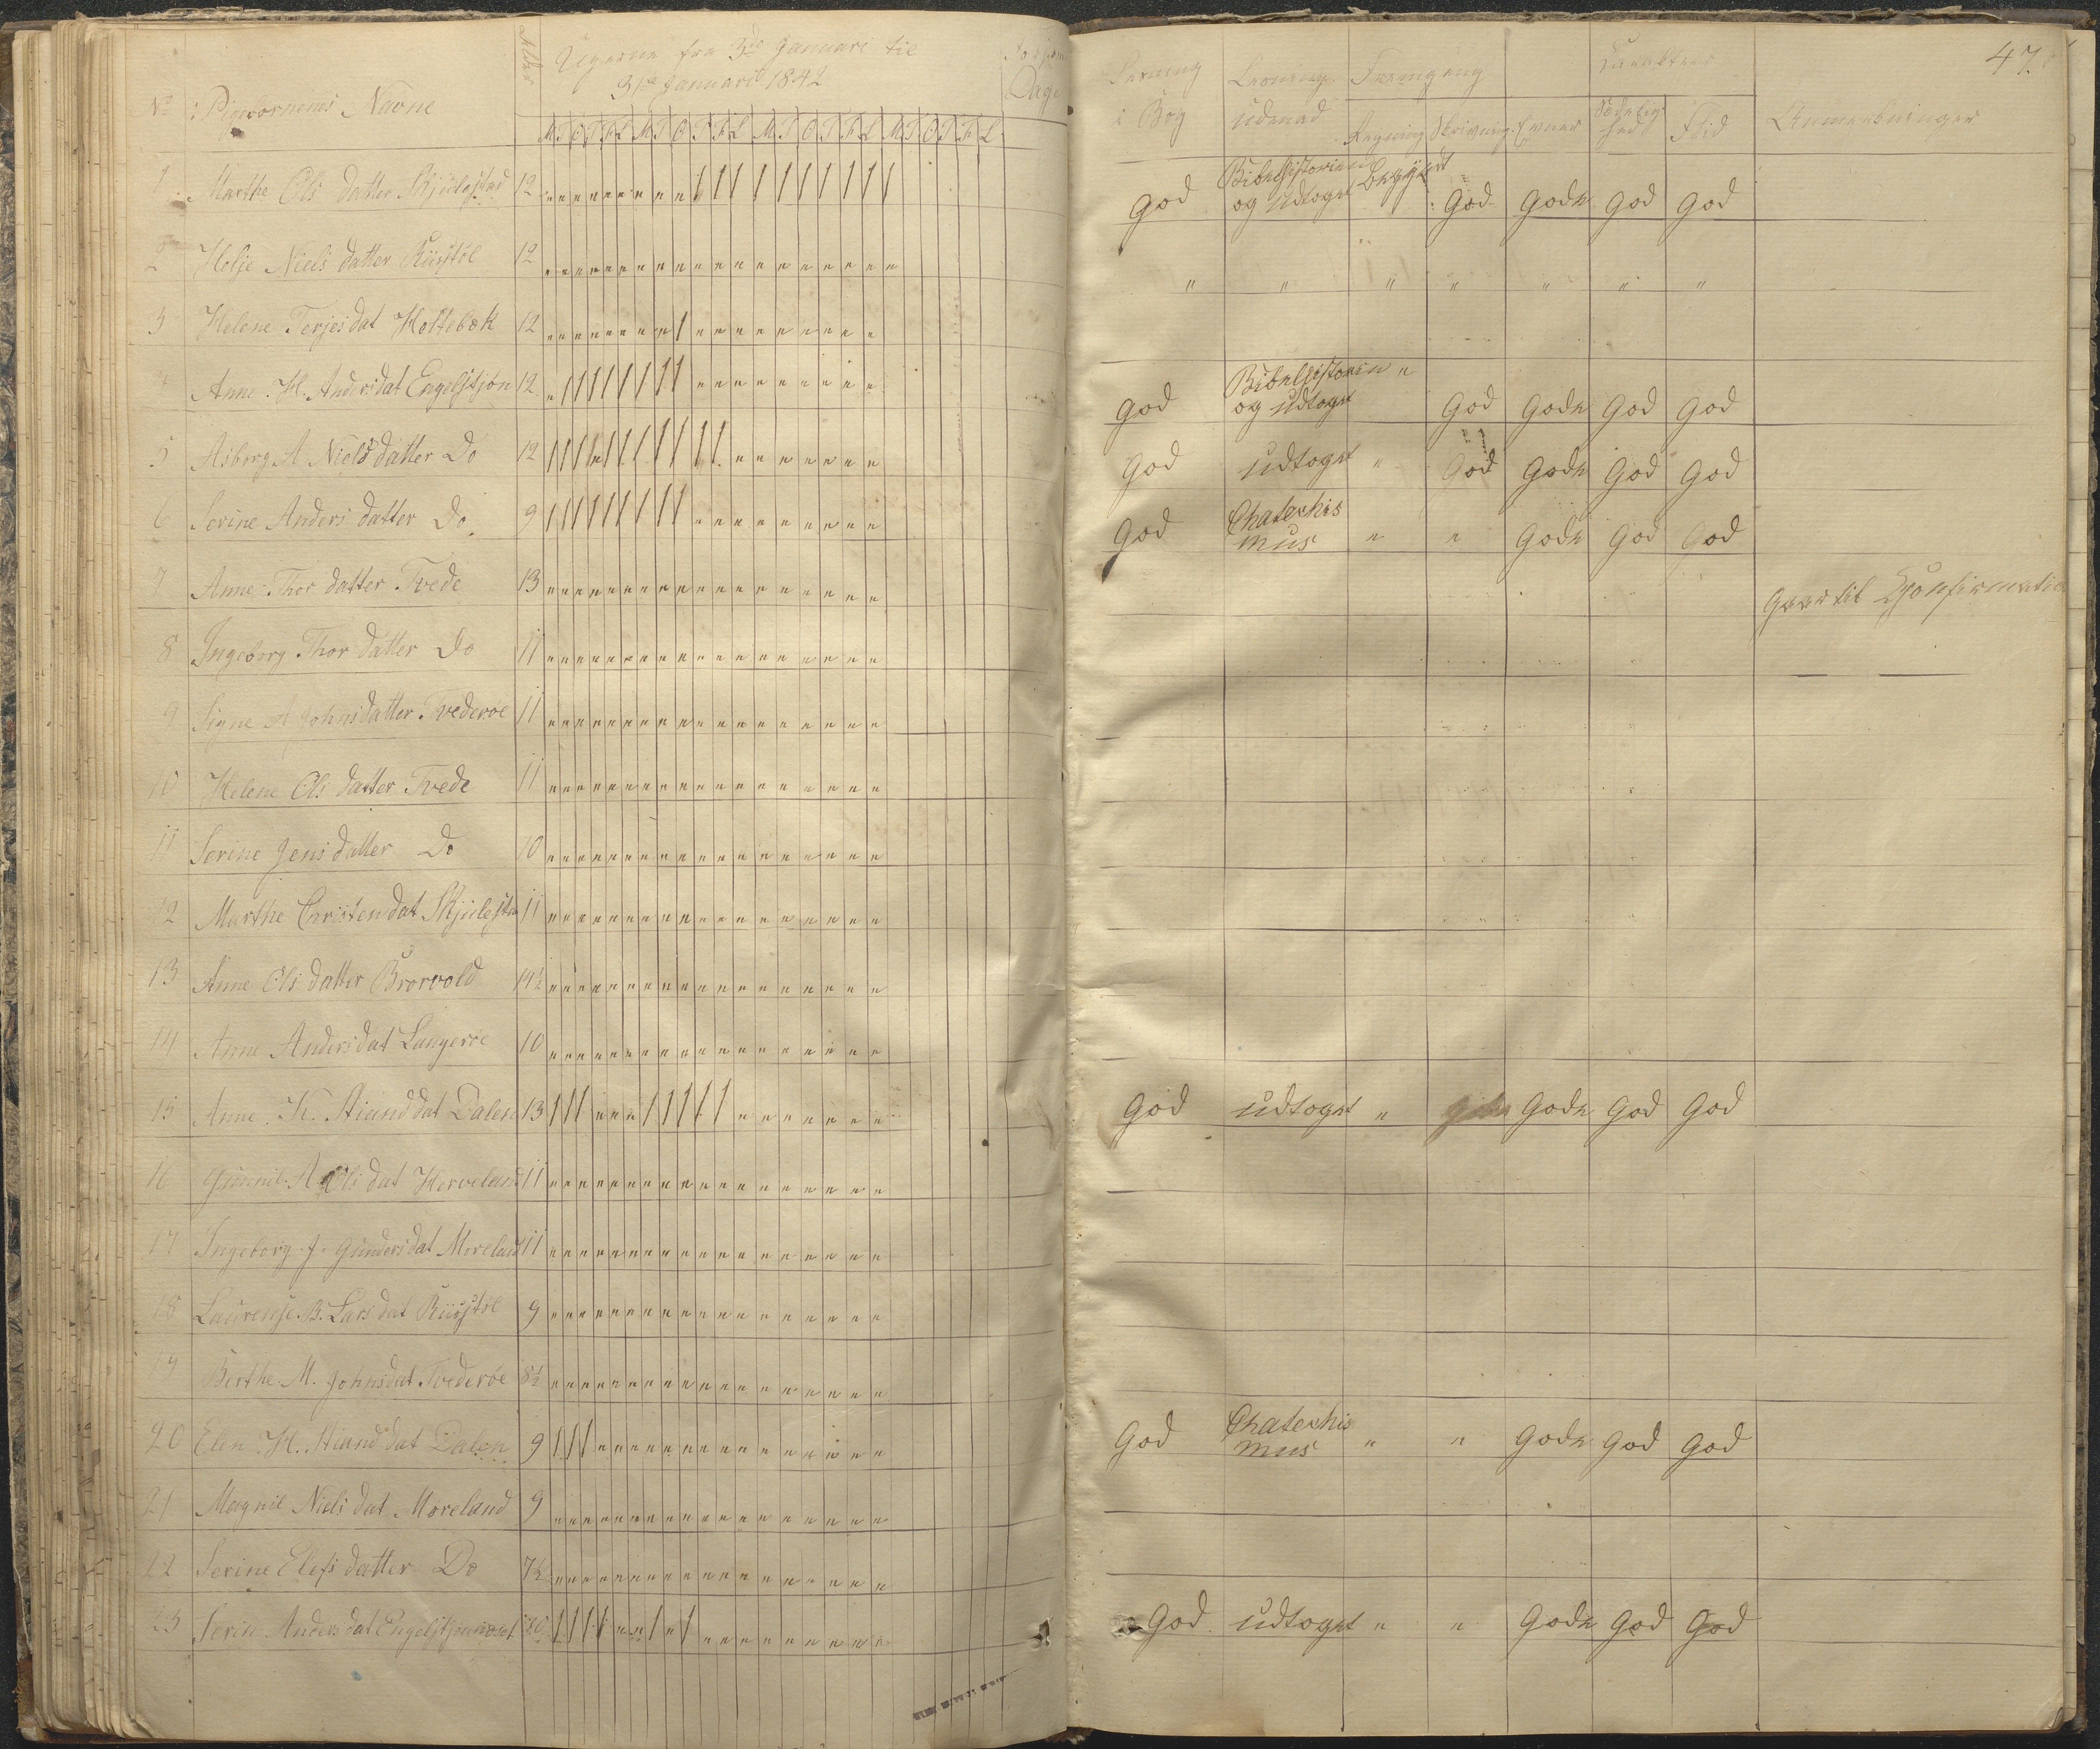 No Pigebørnenes Navne Alder Ugerne fra 3de Januari til
31te Januarii 1842
Dage
M T O T F L M T O T F L M T O T F L M T O T F L
1 Marthe Ols datter Skjulestad 12
2 Helje Niels datter Riisstöl 12
3 Helene Terjesdat Holtebek 12
4 Anne H. Andersdat Engelstjön 12
5 Asborg A Niels datter Do 12
6 Serine Anders datter Do 9
7 Anne Thor datter Tvede 13
8 Ingeborg Thor datter Do 11
9 Signe A Johnsdatter Tvederöe 11
10 Helene Ols datter Tvede 11
11 Serine Jens datter Do 10
12 Marthe Christendat Skjulestad 11
13 Anne Ols datter Brorvold 14½
14 Anne Andersdat Langeröe 10
15 Anne K. Aianddat Dalen 13
16 Gunnil A Olsdat Herveland 11
17 Ingeborg J. Gundersdat Moreland 11
18 Laurense B. Larsdat Riisstöl 9
19 Berthe M. Johnsdat Tvederöe 8½
20 Elen H. Aianddat Dalen 9
21 Magnil Nielsdat Moreland 9
22 Serine Elefsdatter Do 7½
23 Serine Andersdat Engelstjön 10
47.
i Bog Læsning udenad Fremgang Karakteer
Regning Skrivning Evner Sædelighed Flid Anmerkninger
God Bibelhistorien og udtoget Begyndt God Gode God God
" " " " " " "
God Bibelhistorien og udtoget " God Gode God God
God udtoget " God Gode God God
God Chatechismus " " Gode God God
Gaar til Konfirmation
God udtoget " Gode God God
God Chatechismus " " Gode God God
God udtoget " " Gode God God